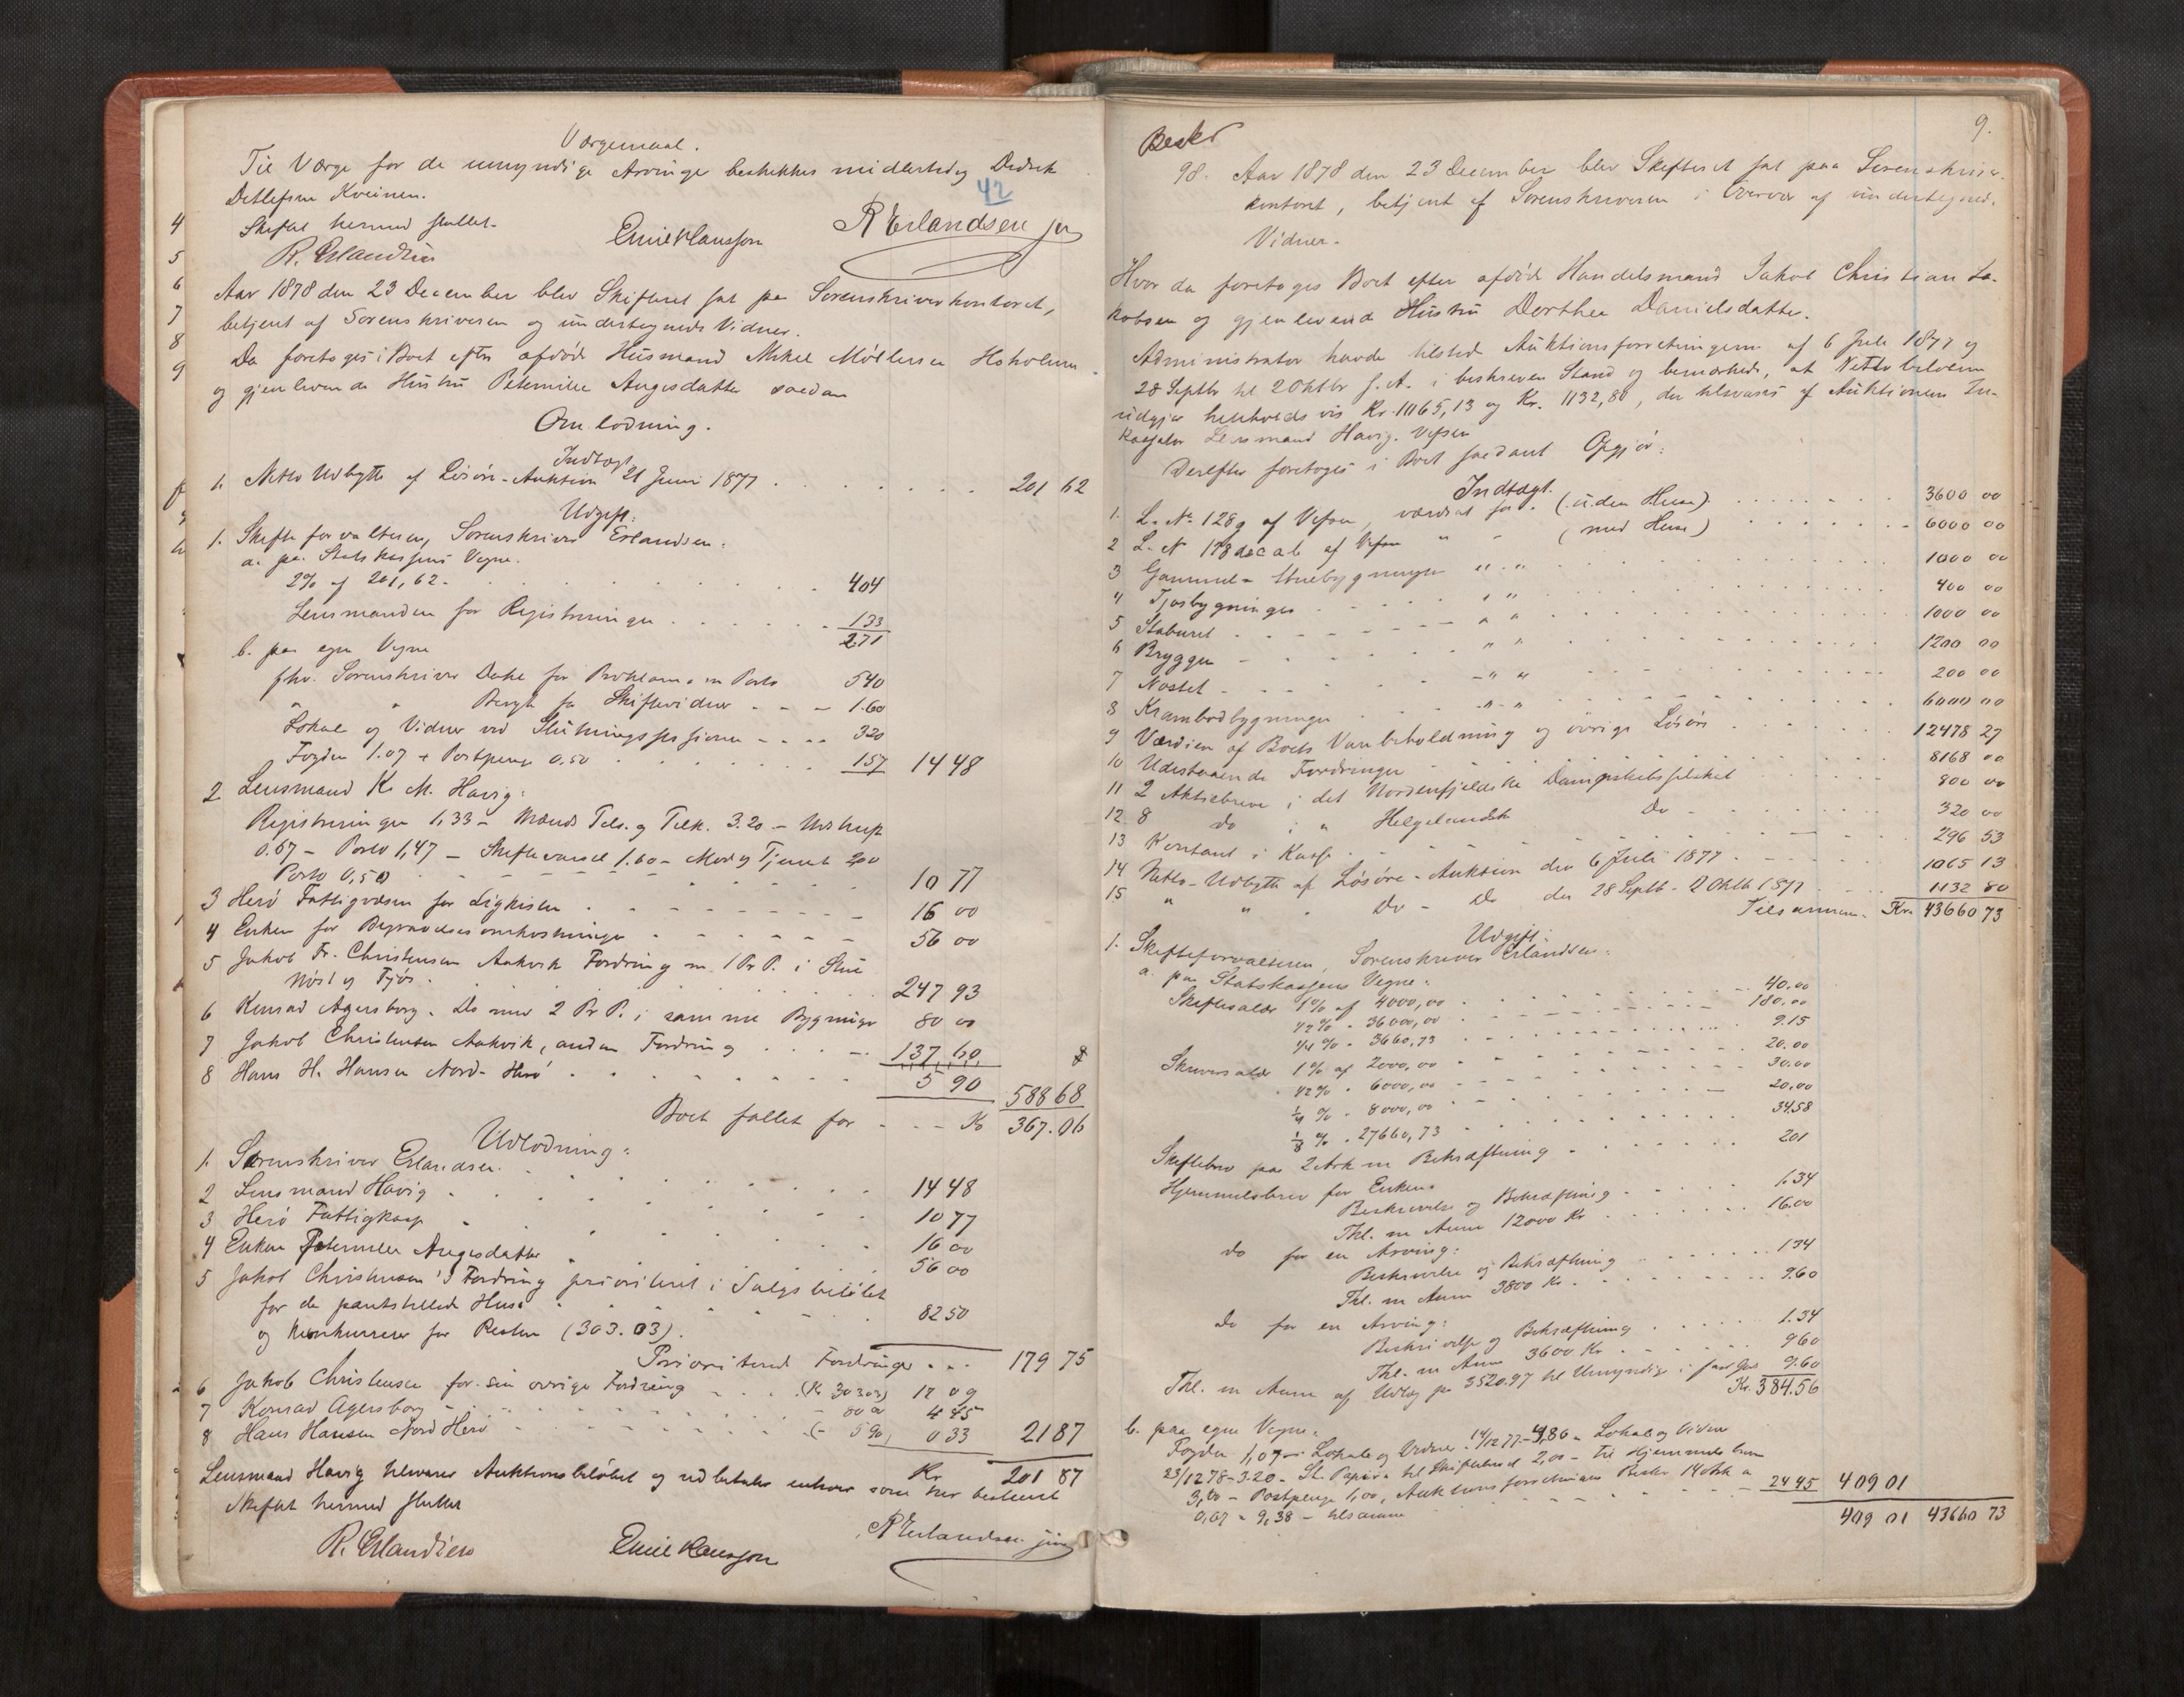 Værgemaal.
Til Værge for de umyndige Arvinge beskikkes midlertidig Didrik
Detlefsen Kveinen.
42
Skiftet hermed sluttet.
R. Erlandsen Emil Hansson R Erlandsen jr
Aar 1878 den 23 December blev Skifteret sat paa Sorenskriverkontoret,
betjent af Sorenskriveren og undertegnede Vidner.
Da foretoges i Boet efter afdøde Husmand Mikel Møllersen Hoholmen
og gjenlevende Hustru Peternille Angesdatter saadan
Omlodning.
Indtægt
1. Netto Udbytte af Løsøre-Auktion 21 Juni 1877 . . . 201 62
Udgift:
1. Skifteforvalteren, Sorenskriver Erlandsen:
a. paa Statskassens Vegne.
2% af 201,62 . . . 404
Lensmanden for Registreringen . . . 133
271
b. paa egne Vegne
fhv. Sorenskriver Dahl for Proklama m Porto 540
" " Bergh for Skiftevidner - - - 1.60
Lokale og Vidner ved Slutningssessionen - - - 320
Fogden 1.07 + Postpenge 0,50 . . . 157 14 48
2 Lensmand K. M. Havig:
Registreringen 1,33 - Mænds Tels. og Tilk. 3.20 - Udskrift
0.67 - Porto 1,47 - Skiftevarsel 1.60 - Mod og Tjenst 200
Porto 0,50 . . . 10 77
3 Herø Fattigvæsen for Ligkisten . . . 16 00
4 Enken for Begravelsesomkostninger . . . 56 00
5 Jakob Fr. Christensen Aakvik Fordring m. 1 Pr P. i Stue
Nøst og Fjøs . . . 247 93
6 Konrad Agersborg. Do med 2 Pr P. i samme Bygninger 80 00
7 Jakob Christensen Aakvik, anden Fordring . . . 137 60
8 Hans H. Hansen Nord-Herø . . . 5 90 588 68
Boet fallet for - - - Kr 367.06
Udlodning:
1. Sorenskriver Erlandsen . . . 14 48
2 Lensmand Havig . . . 10 77
3 Herø Fattigkasse . . . 16 00
4 Enken Petermille Angesdatter . . . 56 00
5 Jakob Christensen's Fordring prioriteret i Salgsbeløbet
for de pantstillede Huse . . . 82 50
og konkurrerer for Resten (303.03).
Prioriterede Fordringer . . . 179 75
6 Jakob Christensen for sin øvrige Fordring - . . (Kr 303 03) 17 09
7 Konrad Agersborg - . . . - 80 00 4 45
8 Hans Hansen Nord Herø . . . (- 5 90) 0 33 21 87
Kr 201 87
Lensmand Havig tilsvarer Auktionsbeløbet og udbetaler enhver som her bestemt
Skiftet hermed sluttet
R. Erlandsen Emil Hansson R Erlandsen jun
9.
Beskr
98. Aar 1878 den 23 December blev Skifteret sat paa Sorenskriver-
kontoret, betjent af Sorenskriveren i Overvær af undertegned.
Vidner.
Hvor da foretoges Boet efter afdøde Handelsmand Jakob Christian Ja-
kobsen og gjenlevende Hustru Dorthea Danielsdatter.
Administrator havde tilsted Auktionsforretningerne af 6 Juli 1877 og
28 Septbr til 2 Oktbr s. A. i beskreven Stand og bemærkede, at Nettobeløbene
udgjør henholdsvis Kr. 1065,13 og Kr. 1132,80, der tilsvares af Auktionens In-
kassator Lensmand Havig. Vefsen
Derefter foretoges i Boet saadant Opgjør:
Indtægt.
1. L. No 128g af Vefsen, værdsat for . (uden Huse) . . . 3600 00
2 L. N 178 dec a b af Vefsen " - (med Huse) . . . 6000 00
3 Gammel- Stuebygningen " . " . . . 1000 00
4 Fjøsbygningen . . . " " . . . 400 00
5 Staburet . . . " " . . . 1000 00
6 Bryggen - . . . " " . . . 1200 00
7 Nøstet - . . . " " . . . 200 00
8 Krambodbygningen . . . - " - " . . . 6000 00
9 Værdien af Boets Varebeholdning og øvrige Løsøre . . . 12478 27
10 Udestaaende Fordringer . . . 8168 00
11 2 Aktiebreve i det Nordenfjeldske Dampskibsselskab . . . 800 00
12 8 do i " Helgelandske Do - . . . 320 00
13 Kontant i Kasse . . . 296 53
14 Netto-Udbytte af Løsøre-Auktion den 6 Juli 1877 . . . 1065 13
15 " " . Do - Do den 28 Septb - 2 Oktb 1877 . . . 1132 80
Tilsammen Kr. 43660 73
Udgift:
1. Skifteforvalteren, Sorenskriver Erlandsen:
a. paa Statskassens Vegne:
Skiftesalær 1% af 4000,00 . . . 40.00
1/2 % - 36000,00 . . . 180.00
1/4 % - 3660,73 . . . 9.15
Skriversalær 1% af 2000,00 . . . 20.00
1/2 % . 6000,00 . . . 30.00
1/4 % . 8000,00 . . . 20.00
1/8 % . 27660,73 . . . 34.58
Skiftebrev paa 2 Ark m Bekræftning . . . 201
Hjemmelsbrev for Enken.
Beskrivelse og Bekræftning . . . 1.34
Thl. m Anm 12000 Kr . . . 16.00
do for en Arving:
Beskrivelse og Bekræftning . . . 134
Thl. m Anm 3800 Kr . . . 9.60
Do for en Arving:
Beskrivelse og Bekræftning . . . 1.34
Thl. m Anm 3600 Kr . . . 960
Thl. m Anm af Udlæg paa 3520.97 til Umyndige i fast Gods 9.60
Kr. 384.56
b. paa egne Vegne:
Fogden 1,07 - Lokale og Vidner 14/12 77 - 4,80 - Lokale og Vidner
23/12 78 - 3.20 - St. Papir til Skiftebrevet 2,00 - til Hjemmelsbrev
3,00 - Postpenge 1,00, Auktionsforretningens Beskr 14 Ark a
0,67 = 9,38 - tilsamm . . . 24 45 409 01
409 01 43660 73